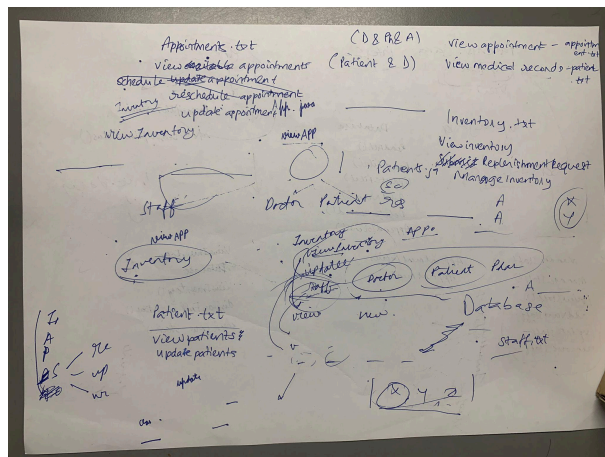 Appointments.txt
(D & Ph & A)
view appointment - appointment.txt
view available appointments
(Patient & D)
view medical records - patient.txt
schedule update appointment
reschedule appointment
Inventory
update appointment
view Inventory
Inventory.txt
view APP
View inventory
Replenishment Request
Manage Inventory
Patients
Staff
Doctor Patient
A
A
X
Y
view APP
Inventory
Inventory
view Inventory
update
Staff
Doctor
Patient
Phar
A
view
new
Database
Patient.txt
view patients &
update patients
staff.txt
A
P
S
re
up
wr
update
v
X Y Z